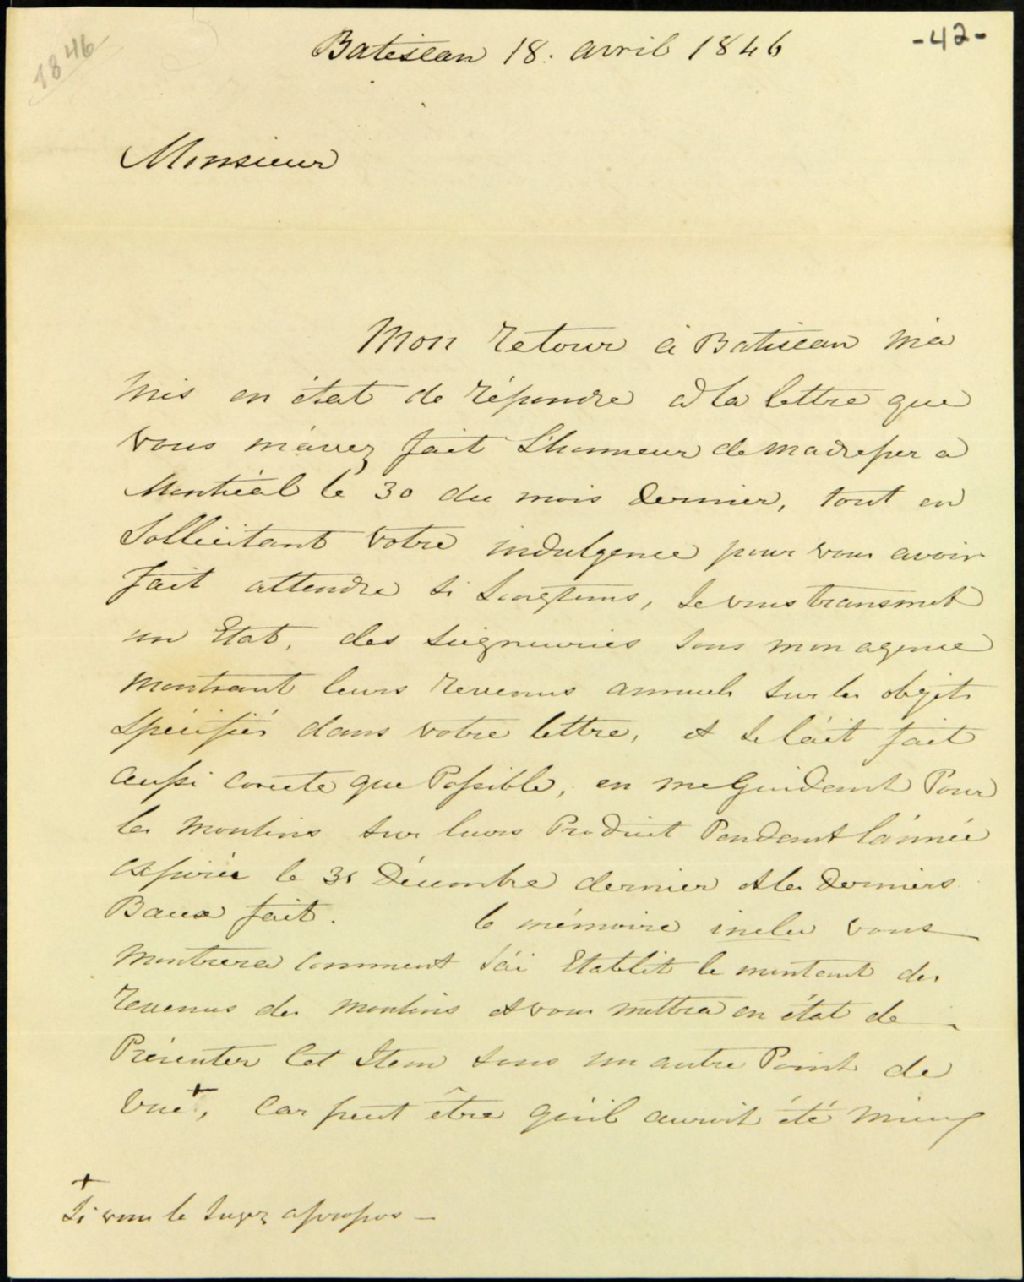 1846
-42-
Batiscan 18. avril 1846
Monsieur
Mon retour à Batiscan m'a
mis en état de répondre à la lettre que
vous m'avez fait L'honneur de m'adresser a
Montréal le 30 du mois dernier, tout en
Sollicitant votre indulgence pour vous avoir
fait attendre si Longtems, Je vous transmet
un Etat, des Seigneuries sous mon agence
montrant leurs revenus annuels sur les objets
spécifiés dans votre lettre, et Je l'ait fait
aussi correcte que Possible, en me Guidant Pour
les moulins sur leurs Produit Pendant l'année
expirée le 31 Décembre dernier et les derniers
Baux fait. le mémoire inclu vous
montrera comment J'ai Etablit le montant des
revenus des moulins et vous mettra en état de
Présenter Cet Item sous un autre Point de
vue +, Car peut être qu'il auroit été mieux
+
Si vous le Jugez apropos —